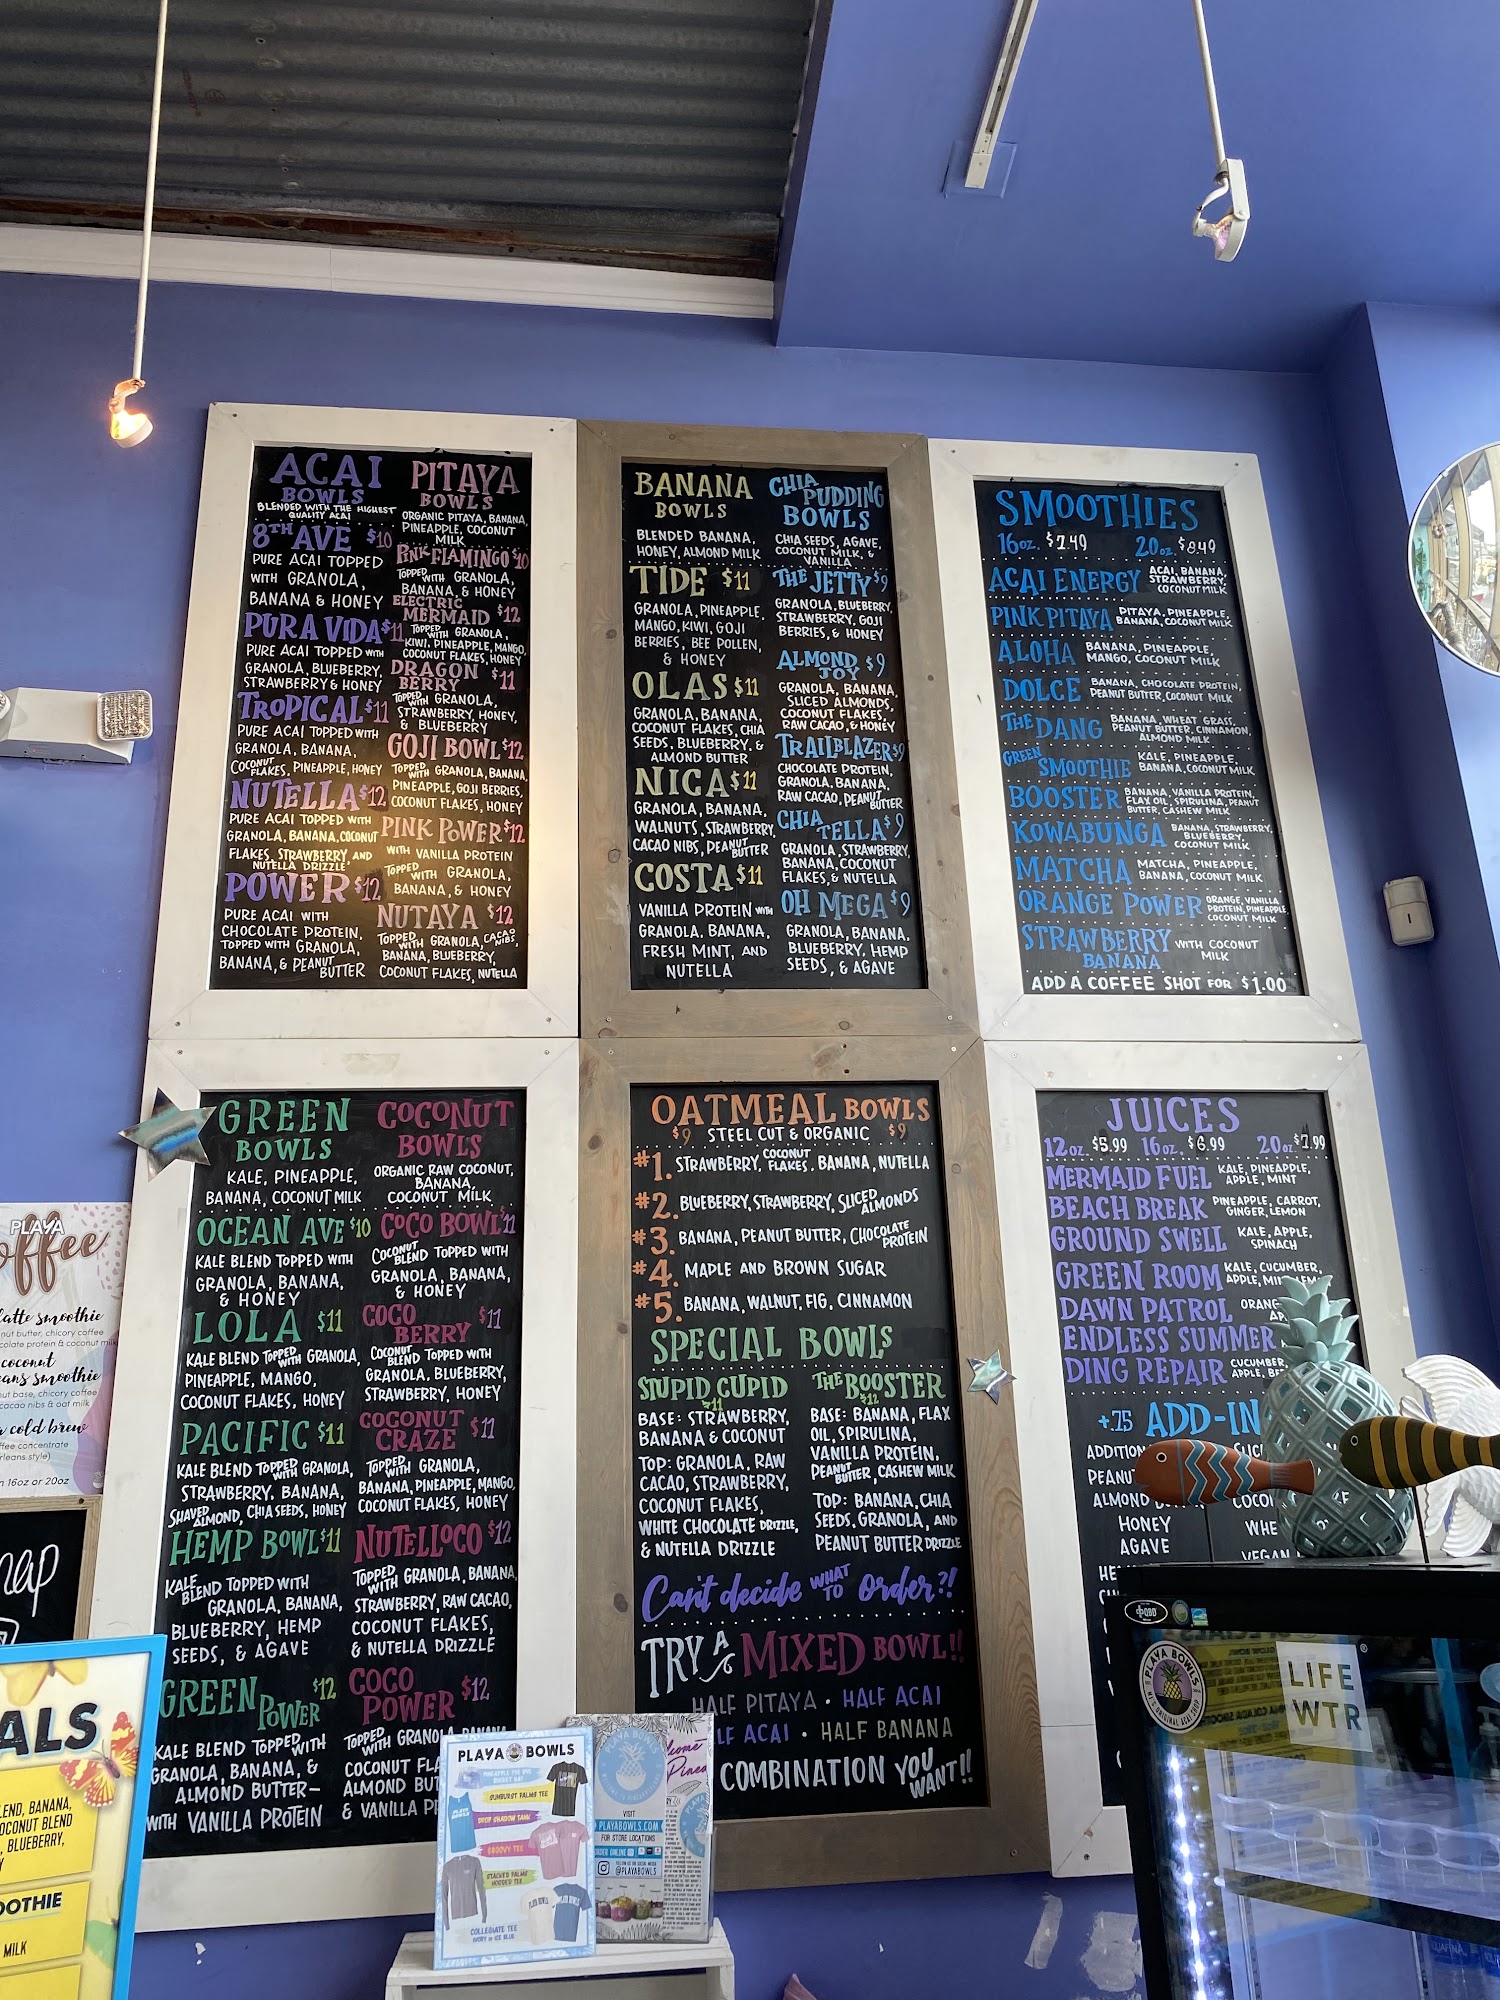 ACAI
BOWLS
BLENDED WITH THE HIGHEST
QUALITY ACAI
8TH AVE $10
PURE ACAI TOPPED
WITH GRANOLA,
BANANA & HONEY
PURA VIDA $11
PURE ACAI TOPPED WITH
GRANOLA, BLUEBERRY,
STRAWBERRY & HONEY
TROPICAL $11
PURE ACAI TOPPED WITH
GRANOLA, BANANA,
COCONUT FLAKES, PINEAPPLE, HONEY
NUTELLA $12
PURE ACAI TOPPED WITH
GRANOLA, BANANA, COCONUT
FLAKES, STRAWBERRY AND
NUTELLA DRIZZLE
POWER $12
PURE ACAI WITH
CHOCOLATE PROTEIN,
TOPPED WITH GRANOLA,
BANANA, & PEANUT BUTTER
PITAYA
BOWLS
ORGANIC PITAYA, BANANA,
PINEAPPLE, COCONUT
MILK
PINK FLAMINGO $10
TOPPED WITH GRANOLA,
BANANA, & HONEY
ELECTRIC
MERMAID $12
TOPPED WITH GRANOLA,
KIWI, PINEAPPLE, MANGO,
COCONUT FLAKES, HONEY
DRAGON
BERRY $11
TOPPED WITH GRANOLA,
STRAWBERRY, HONEY,
& BLUEBERRY
GOJI BOWL $12
TOPPED WITH GRANOLA, BANANA,
PINEAPPLE, GOJI BERRIES,
COCONUT FLAKES, HONEY
PINK POWER $12
WITH VANILLA PROTEIN
TOPPED WITH GRANOLA,
BANANA, & HONEY
NUTAYA $12
TOPPED WITH GRANOLA, CACAO NIBS,
BANANA, BLUEBERRY,
COCONUT FLAKES, NUTELLA
BANANA
BOWLS
BLENDED BANANA,
HONEY, ALMOND MILK
TIDE $11
GRANOLA, PINEAPPLE,
MANGO, KIWI, GOJI
BERRIES, BEE POLLEN,
& HONEY
OLAS $11
GRANOLA, BANANA,
COCONUT FLAKES, CHIA
SEEDS, BLUEBERRY, &
ALMOND BUTTER
NICA $11
GRANOLA, BANANA,
WALNUTS, STRAWBERRY,
CACAO NIBS, PEANUT BUTTER
COSTA $11
VANILLA PROTEIN WITH
GRANOLA, BANANA,
FRESH MINT, AND
NUTELLA
CHIA
PUDDING
BOWLS
CHIA SEEDS, AGAVE,
COCONUT MILK, &
VANILLA
THE JETTY $9
GRANOLA, BLUEBERRY,
STRAWBERRY, GOJI
BERRIES, & HONEY
ALMOND
JOY $9
GRANOLA, BANANA,
SLICED ALMONDS,
COCONUT FLAKES,
RAW CACAO, & HONEY
TRAILBLAZER $9
CHOCOLATE PROTEIN,
GRANOLA, BANANA,
RAW CACAO, PEANUT BUTTER
CHIA
TELLA $9
GRANOLA, STRAWBERRY,
BANANA, COCONUT
FLAKES, & NUTELLA
OH MEGA $9
GRANOLA, BANANA,
BLUEBERRY, HEMP
SEEDS, & AGAVE
SMOOTHIES
16oz. $7.49 20oz. $8.49
ACAI ENERGY ACAI, BANANA,
STRAWBERRY,
COCONUT MILK
PINK PITAYA PITAYA, PINEAPPLE,
BANANA, COCONUT MILK
ALOHA BANANA, PINEAPPLE,
MANGO, COCONUT MILK
DOLCE BANANA, CHOCOLATE PROTEIN,
PEANUT BUTTER, COCONUT MILK
THE DANG BANANA, WHEAT GRASS,
PEANUT BUTTER, CINNAMON,
ALMOND MILK
GREEN SMOOTHIE KALE, PINEAPPLE,
BANANA, COCONUT MILK
BOOSTER BANANA, VANILLA PROTEIN,
FLAX OIL, SPIRULINA, PEANUT
BUTTER, CASHEW MILK
KOWABUNGA BANANA, STRAWBERRY,
BLUEBERRY,
COCONUT MILK
MATCHA MATCHA, PINEAPPLE,
BANANA, COCONUT MILK
ORANGE POWER ORANGE, VANILLA
PROTEIN, PINEAPPLE,
COCONUT MILK
STRAWBERRY
BANANA WITH COCONUT
MILK
ADD A COFFEE SHOT FOR $1.00
GREEN
BOWLS
KALE, PINEAPPLE,
BANANA, COCONUT MILK
OCEAN AVE $10
KALE BLEND TOPPED WITH
GRANOLA, BANANA,
& HONEY
LOLA $11
KALE BLEND TOPPED WITH GRANOLA,
PINEAPPLE, MANGO,
COCONUT FLAKES, HONEY
PACIFIC $11
KALE BLEND TOPPED WITH GRANOLA,
STRAWBERRY, BANANA,
SHAVED ALMOND, CHIA SEEDS, HONEY
HEMP BOWL $11
KALE BLEND TOPPED WITH
GRANOLA, BANANA,
BLUEBERRY, HEMP
SEEDS, & AGAVE
GREEN POWER $12
KALE BLEND TOPPED WITH
GRANOLA, BANANA, &
ALMOND BUTTER-
WITH VANILLA PROTEIN
COCONUT
BOWLS
ORGANIC RAW COCONUT,
BANANA,
COCONUT MILK
COCO BOWL $11
COCONUT BLEND TOPPED WITH
GRANOLA, BANANA,
& HONEY
COCO
BERRY $11
COCONUT BLEND TOPPED WITH
GRANOLA, BLUEBERRY,
STRAWBERRY, HONEY
COCONUT
CRAZE $11
TOPPED WITH GRANOLA,
BANANA, PINEAPPLE, MANGO,
COCONUT FLAKES, HONEY
NUTELLOCO $12
TOPPED WITH GRANOLA, BANANA,
STRAWBERRY, RAW CACAO,
COCONUT FLAKES,
& NUTELLA DRIZZLE
COCO
POWER $12
TOPPED WITH GRANOLA, BANANA
COCONUT FLA
ALMOND BUT
& VANILLA P
OATMEAL BOWLS
$9 STEEL CUT & ORGANIC $9
#1. STRAWBERRY, COCONUT FLAKES, BANANA, NUTELLA
#2. BLUEBERRY, STRAWBERRY, SLICED ALMONDS
#3. BANANA, PEANUT BUTTER, CHOCOLATE PROTEIN
#4. MAPLE AND BROWN SUGAR
#5. BANANA, WALNUT, FIG, CINNAMON
SPECIAL BOWLS
STUPID CUPID
$11
BASE: STRAWBERRY,
BANANA & COCONUT
TOP: GRANOLA, RAW
CACAO, STRAWBERRY,
COCONUT FLAKES,
WHITE CHOCOLATE DRIZZLE,
& NUTELLA DRIZZLE
THE BOOSTER
$12
BASE: BANANA, FLAX
OIL, SPIRULINA,
VANILLA PROTEIN,
PEANUT BUTTER, CASHEW MILK
TOP: BANANA, CHIA
SEEDS, GRANOLA, AND
PEANUT BUTTER DRIZZLE
Can't decide WHAT TO Order?!
TRY A MIXED BOWL!!
HALF PITAYA • HALF ACAI
LF ACAI • HALF BANANA
COMBINATION YOU WANT!!
JUICES
12oz. $5.99 16oz. $6.99 20oz. $7.99
MERMAID FUEL KALE, PINEAPPLE,
APPLE, MINT
BEACH BREAK PINEAPPLE, CARROT,
GINGER, LEMON
GROUND SWELL KALE, APPLE,
SPINACH
GREEN ROOM KALE, CUCUMBER,
APPLE, MI
DAWN PATROL ORANG
AP
ENDLESS SUMMER
DING REPAIR CUCUMBER,
APPLE, BE
+.75 ADD-IN
ADDITION
PEANU
ALMOND
HONEY
AGAVE
HE
COCO
WHE
VEGAN
PLAYA
offee
latte smoothie
nut butter, chicory coffee
colate protein & coconut milk
coconut
eans smoothie
nut base, chicory coffee
cacao nibs & oat milk
cold brew
ffee concentrate
rleans style)
n 16oz or 20oz
nap
ALS
LEND, BANANA,
OCONUT BLEND
, BLUEBERRY,
Y
OOTHIE
MILK
PLAYA BOWLS
PINEAPPLE PUF DYE
BUCKET HAT
SUNBURST PALMS TEE
DROP SHADOW TANK
GROOVY TEE
STACKED PALMS
HOODED TEE
COLLEGIATE TEE
IVORY OR ICE BLUE
VISIT
PLAYABOWLS.COM
FOR STORE LOCATIONS
ORDER ONLINE
FOLLOW US ON SOCIAL MEDIA
@PLAYABOWLS
PLAYA BOWLS
NJ'S ORIGINAL ACAI SHOP
LIFE
WTR
QBD